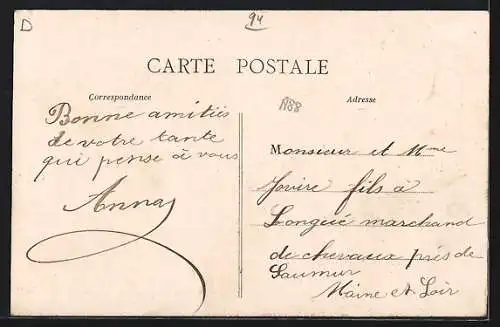 D
94
CARTE POSTALE
Correspondance
188
Adresse
Bonne amitiés
de votre tante
qui pense à vous
Anna
Monsieur et Mme
fils à
Longué marchand
de chevaux près de
Saumur
Maine et Loir